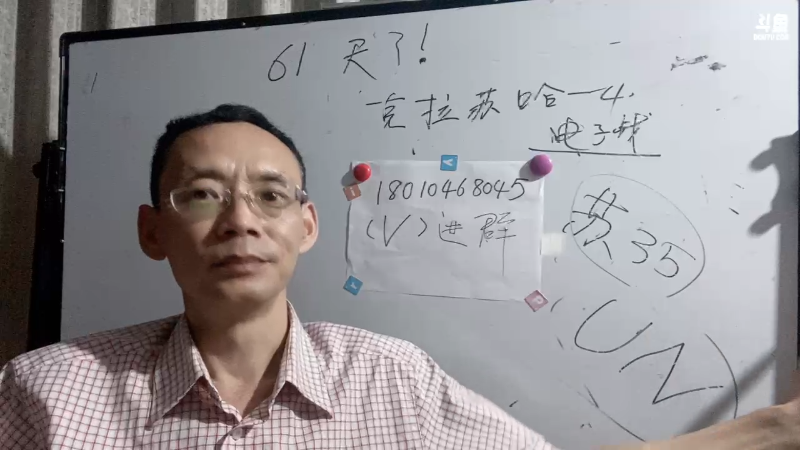 斗鱼
DOUYU.COM
61 天了!
克拉苏哈—4.
电子战
18010468045
(V)进群
苏35
(UN)